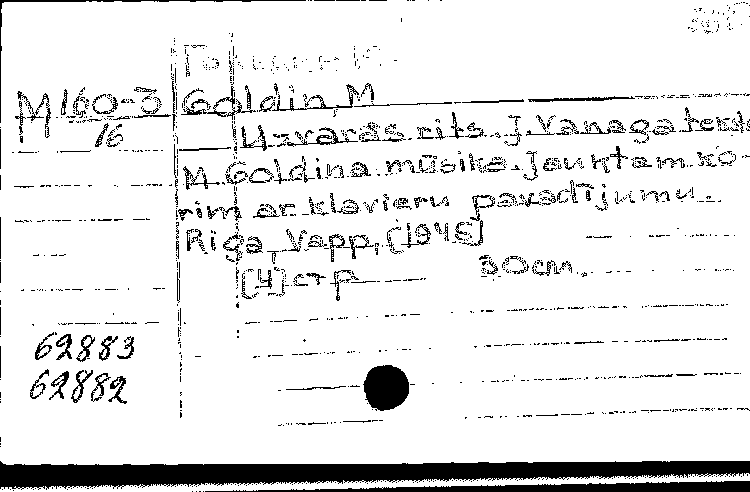 М 160-3
16
Goldin, M
Uzvaras rits. J. Vanaga teksts
M. Goldina mūsika. Jauktam ko-
rim ar klavieru pavadījumu.
Riga, Vapp, [1945]
[4] стр 30 cm.
62883
62882